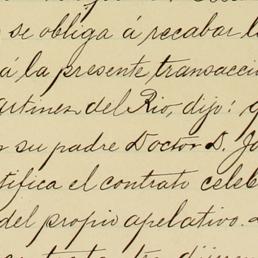 se obliga á recabar l
á la presente transacci
artinez del Rio, dijo: q
su padre Doctor D. Jo
tifica el contrato celeb
del propio apelativo.